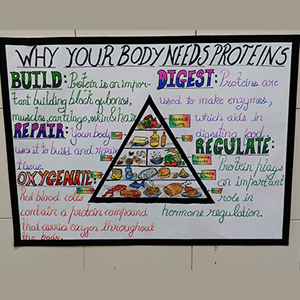 WHY YOUR BODY NEEDS PROTEINS
BUILD: Protein is an impor-
tant building block of bones,
muscles, cartilage, skin & hair
REPAIR: your body
uses it to build and repair
tissue.
OXYGENATE:
Red blood cells
contain a protein compound
that carries oxygen throughout
the body.
DIGEST: Proteins are
used to make enzymes,
which aids in
digesting food.
REGULATE:
Protein plays
an important
role in
hormone regulation.